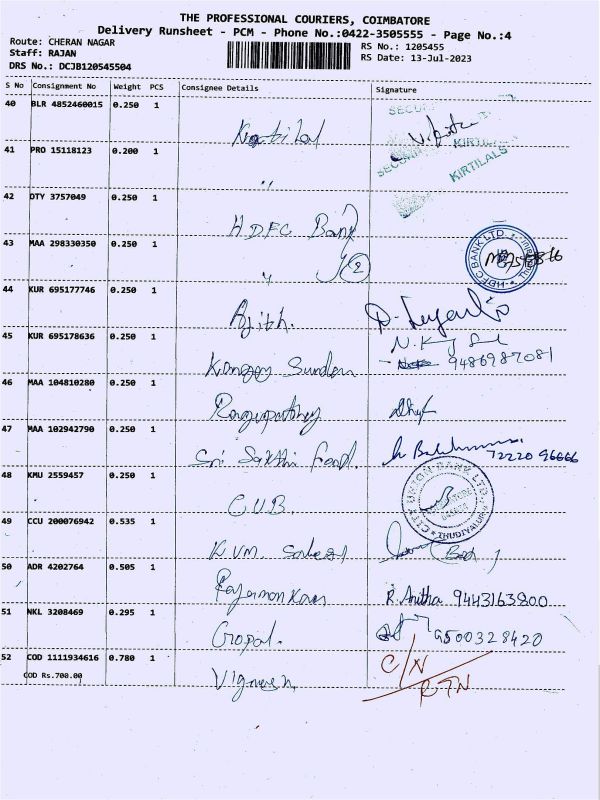 THE PROFESSIONAL COURIERS, COIMBATORE
Delivery Runsheet - PCM - Phone No.:0422-3505555 - Page No.:4
Route: CHERAN NAGAR
Staff: RAJAN
DRS No.: DCJB120545504
RS No.: 1205455
RS Date: 13-Jul-2023
S No Consignment No Weight PCS Consignee Details Signature
40 BLR 4852460015 0.250 1
KIRTILALS
41 PRO 15118123 0.200 1
"
KIRTILALS
42 DTY 3757049 0.250 1
HDFC Bank
43 MAA 298330350 0.250 1
" 2
HDFC BANK LTD.
44 KUR 695177746 0.250 1
Ajith.
45 KUR 695178636 0.250 1
Sundem
9486987081
46 MAA 104810280 0.250 1
47 MAA 102942790 0.250 1
Sri Sakthi Food.
72220 96666
48 KMU 2559457 0.250 1
CUB
CITY UNION BANK LTD
THUDIYALUR
49 CCU 200076942 0.535 1
K.V.M.
50 ADR 4202764 0.505 1
R. Anitha 9443163800
51 NKL 3208469 0.295 1
Gropal.
9500328420
52 COD 1111934616 0.780 1
COD Rs.700.00
Vignesh
C/N
RTN